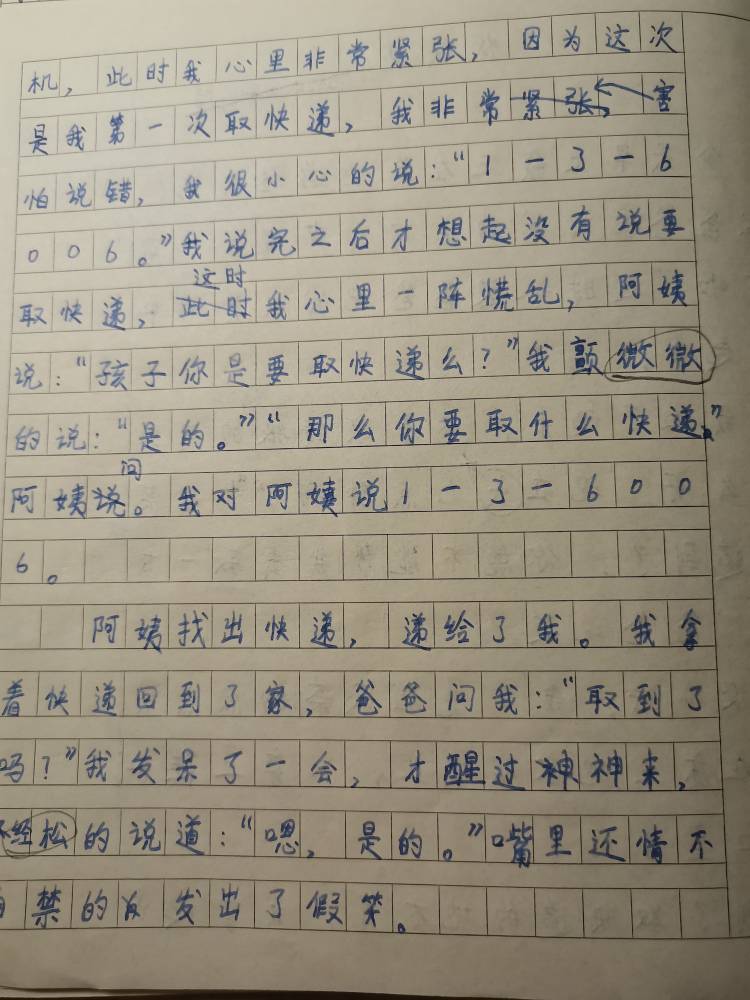 机，此时我心里非常紧张，因为这次
是我第一次取快递，我非常紧张，害
怕说错，我很小心的说：“1一3一6
006。”我说完之后才想起没有说要
这时
取快递，此时我心里一阵慌乱，阿姨
说：“孩子你是要取快递么？”我颤微微
的说：“是的。”“那么你要取什么快递。”
问
阿姨说。我对阿姨说1一3一600
6。
阿姨找出快递，递给了我。我拿
着快递回到了家，爸爸问我：“取到了
吗？”我发呆了一会，才醒过神神来，
经松的说道：“嗯，是的。”嘴里还情不
禁的发出了假笑。